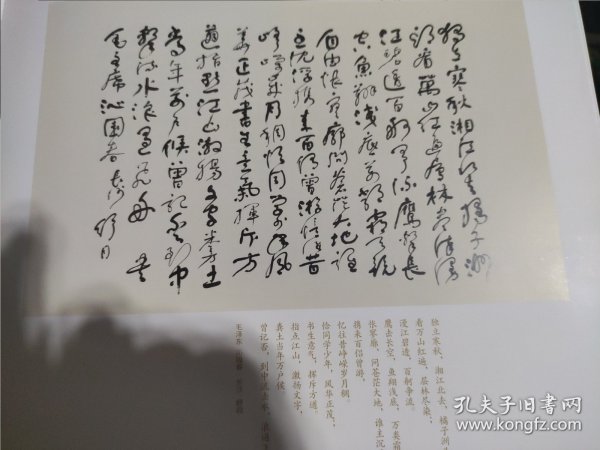 独立寒秋湘江北去橘子洲
头看万山红遍层林尽染漫
江碧透百舸争流鹰击长
空鱼翔浅底万类霜天竞
自由怅寥廓问苍茫大地谁
主沉浮携来百侣曾游忆往昔
峥嵘岁月稠恰同学少年风
华正茂书生意气挥斥方
遒指点江山激扬文字粪土
当年万户侯曾记否到中
流击水浪遏飞舟
毛主席沁园春长沙
独立寒秋，湘江北去，橘子洲
看万山红遍，层林尽染；
漫江碧透，百舸争流。
鹰击长空，鱼翔浅底，万类霜
怅寥廓，问苍茫大地，谁主沉
携来百侣曾游，
忆往昔峥嵘岁月稠。
恰同学少年，风华正茂；
书生意气，挥斥方遒。
指点江山，激扬文字，
粪土当年万户侯。
曾记否，到中流击水，浪遏飞
毛泽东
孔夫子旧书网
www.kongfz.com